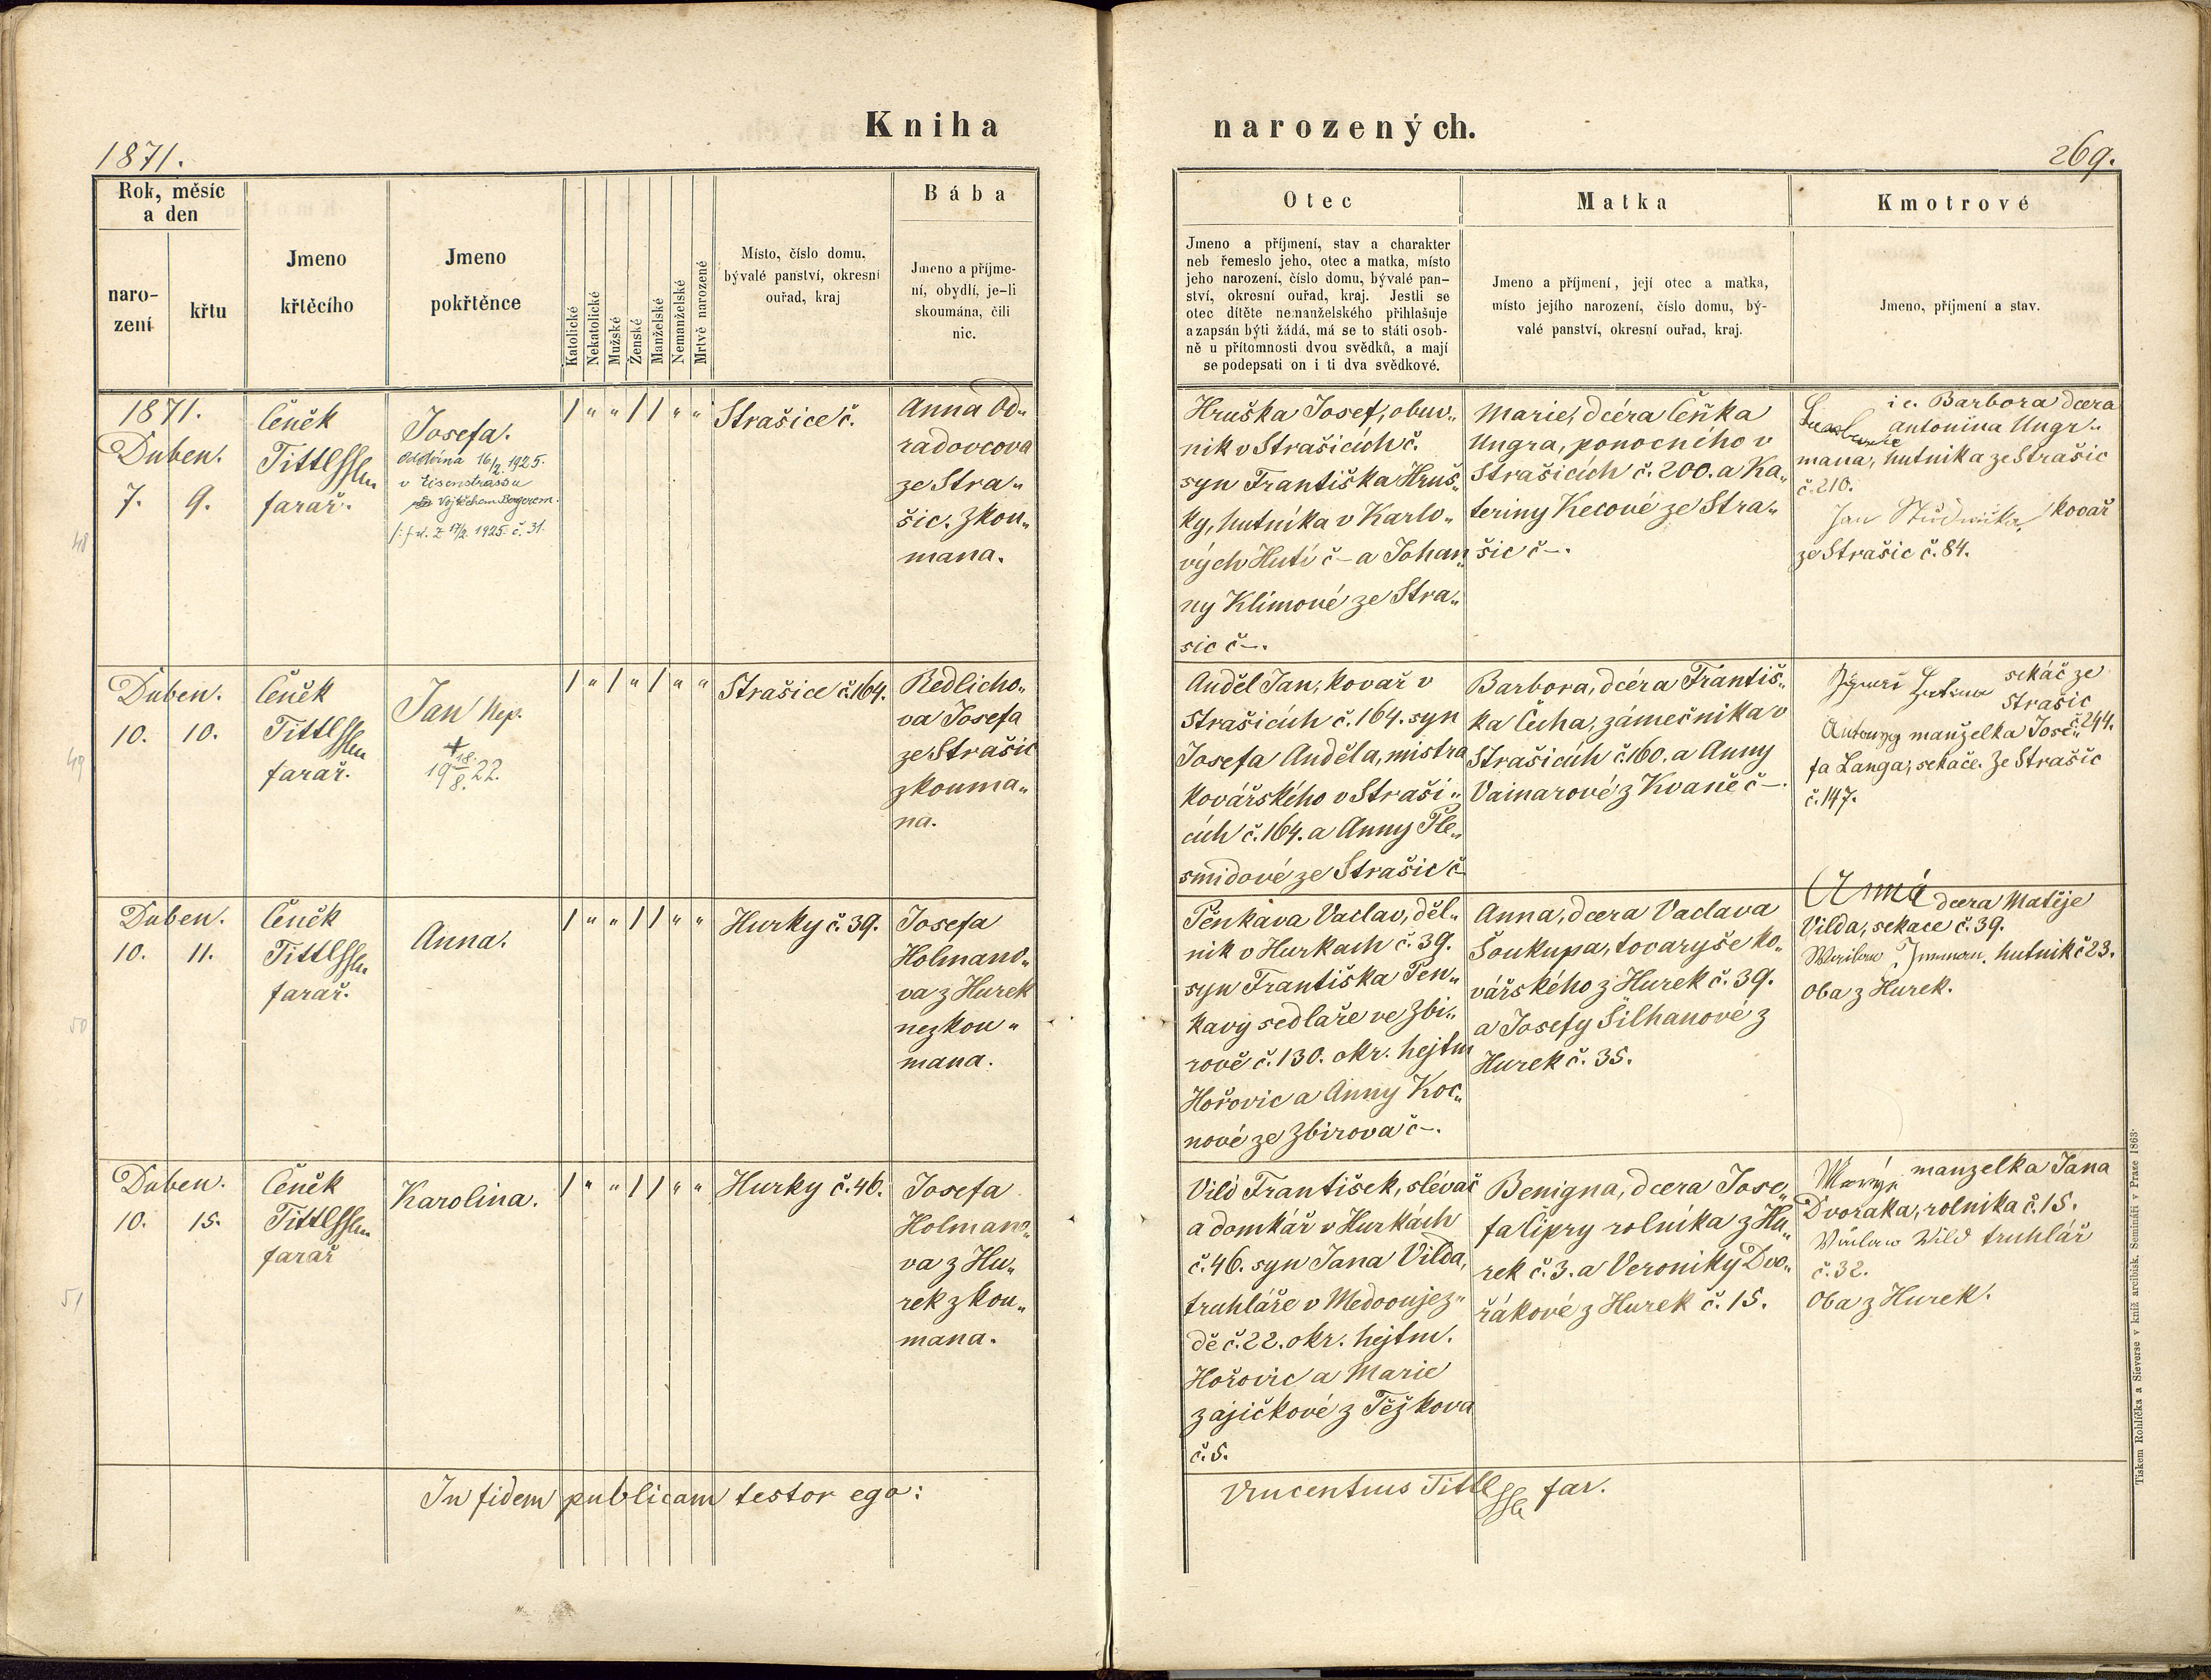 Kniha
narozených.
1871.
269.
Rok, měsíc
a den
naro-
zení
křtu
Jmeno
křtěcího
Jmeno
pokřtěnce
Katolické
Nekatolické
Mužské
Ženské
Manželské
Nemanželské
Mrtvě narozené
Místo, číslo domu,
bývalé panství, okresní
ouřad, kraj
Bába
Jmeno a příjme-
ní, obydlí, je-li
skoumána, čili
nic.
Otec
Jmeno a příjmení, stav a charakter
neb řemeslo jeho, otec a matka, místo
jeho narození, číslo domu, bývalé pan-
ství, okresní ouřad, kraj. Jestli se
otec dítěte nemanželského přihlašuje
a zapsán býti žádá, má se to státi osob-
ně u přítomnosti dvou svědků, a mají
se podepsati on i ti dva svědkové.
Matka
Jmeno a příjmení, její otec a matka,
místo jejího narození, číslo domu, bý-
valé panství, okresní ouřad, kraj.
Kmotrové
Jmeno, příjmení a stav.
48
1871.
Duben.
7. 9.
Čeněk
Tittl
farař.
Josefa.
Oddána 16/2. 1925.
v Eisenstrassu
Vojtěchem Bergerem.
17/2. 1925. č. 31.
/ " " / / " "
Strašice č.
Anna Od„
radovcova
ze Stra„
šic. Zkou„
mana.
Hruška Josef, obuv„
nik v Strašicích č.
syn Františka Hruš„
ky, hutníka v Karlo„
vých Hutí č – a Johan„
ny Klímové ze Stra„
sic č –.
Marie, dcéra Čeňka
Ungra, ponocního v
Strašicích č. 200. a Ka„
teriny Kecové ze Stra„
šic č –.
i c. Barbora dcera
antonina Ungr„
mana, hutnika ze Strašic
č. 210.
Jan Studnička, kovář
ze Strašic č. 84.
49
Duben.
10. 10.
Čeněk
Tittl
farař.
Jan Nep.
+
19 18./8. 22.
/ " / " / " "
Strašice č. 164.
Redlicho„
va Josefa
ze Strašic
zkouma„
na.
Anděl Jan, kovař v
Strašicích č. 164. syn
Josefa Anděla, mistra
kovářského v Straši„
cích č. 164. a Anny Ple„
smidové ze Strašic č
Barbora, dcéra Františ„
ka Čecha, zámečnika v
Strašicích č. 160. a Anny
Vainarové z Kvaně č –.
sekáč ze
Strašic
č. 244.
manželka Jose„
fa Langa, sekáče. Ze Strašic
č. 147.
50
Duben.
10. 11.
Čeněk
Tittl
farař.
Anna.
/ " " / / " "
Hurky č. 39.
Josefa
Holmano„
va z Hurek
nezkou„
mana.
Pěnkava Vaclav, děl„
nik v Hurkach č. 39.
syn Františka Pen„
kavy sedlaře ve Zbi„
rově č. 130. okr. hejtm
Hořovic a Anny Koc„
nové ze Zbirova č –.
Anna, dcera Vaclava
Šoukupa, tovaryše ko„
vářského z Hurek č. 39.
a Josefy Šilhanové z
Hurek č. 35.
Anna dcera Matěje
Vilda, sekače č. 39.
hutnik č 23.
Oba z Hurek.
51
Duben.
10. 15.
Čeněk
Tittl
farař
Karolina.
/ " " / / " "
Hurky č. 46.
Josefa
Holmano„
va z Hu„
rek zkou„
mana.
Vild František, slévač
a domkář v Hurkách
č. 46. syn Jana Vilda,
truhláře v Medooujez„
dě č. 22. okr. hejtm.
Hořovic a Marie
zajíčkové z Těžkova
č. 5.
Benigna, dcera Jose„
fa Čipry rolníka z Hu„
rek č. 3. a Veroniky Dvo„
řákové z Hurek č. 15.
manzelka Jana
Dvořaka, rolnika č. 15.
Václaw Wild truhlář
č. 32.
Oba z Hurek.
In fidem publicam testor ego:
Vincentius Tittl far.
Tiskem Rohlíčka a Sieverse v kníž. arcibisk. Semináři v Praze 1863.